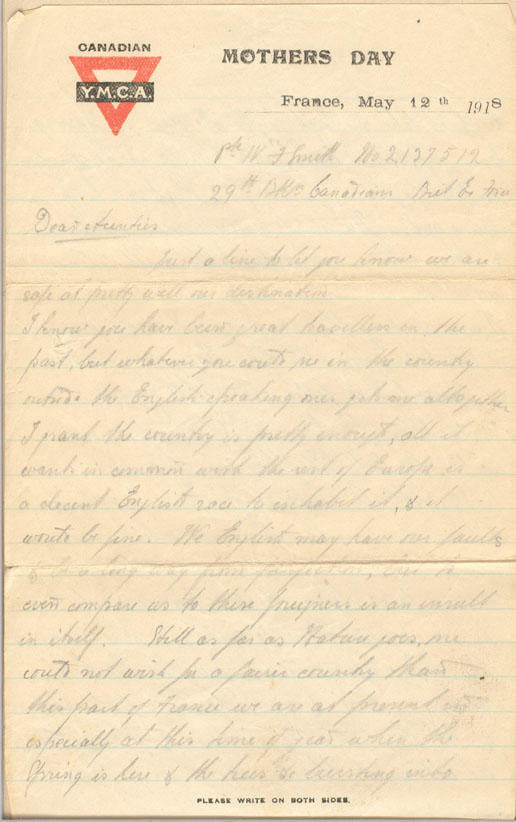 CANADIAN
Y.M.C.A.
MOTHERS DAY
France, May 12th 1918
Pte W. F Smith No 2137512
29th Btn Canadians Brit Ex
Dear Aunties
Just a line to let you know we are
safe at pretty well our destination.
I know you have been great travellers in the
past, but whatever you see in the country
outside the English speaking ones, altogether
I grant the country is pretty enough, all it
wants in common with the rest of Europe is
a decent English race to inhabit it, & it
would be fine. We English may have our faults
& be a long way from perfection, but to
even compare us to these foreigners is an insult
in itself. Still as far as Nature goes, one
could not wish for a fairer country than
this part of France we are at present in
especially at this time of year when the
Spring is here & the trees bursting into
PLEASE WRITE ON BOTH SIDES.